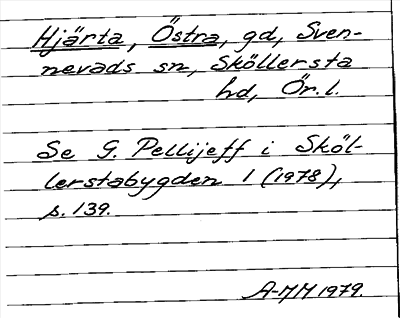 Hjärta, Östra, gd, Sven-
nevads sn, Sköllersta
hd, Ör.l.
Se G. Pellijeff i Sköl-
lerstabygden 1 (1978),
s. 139.
A-MM 1979.